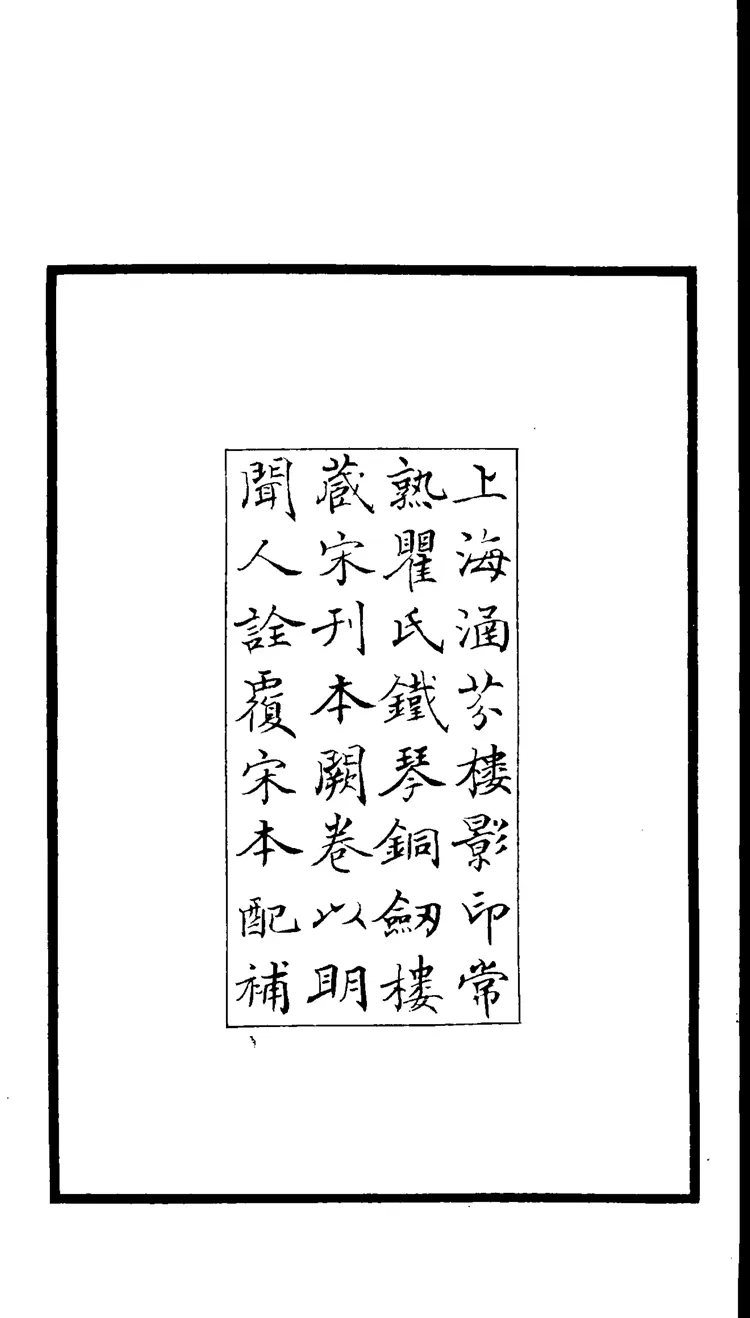 上海涵芬樓影印常
熟瞿氏鐵琴銅劒樓
藏宋刊本闕卷以明
聞人詮覆宋本配補